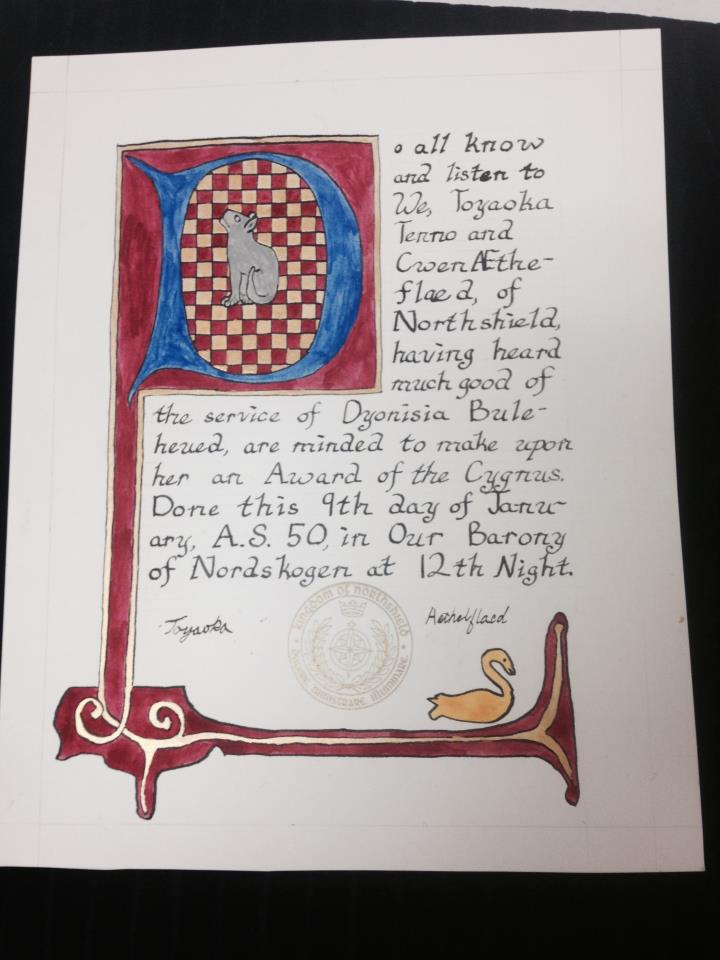 Do all know
and listen to
We, Toyaoka
Tenno and
Cwen Æthe-
flaed, of
Northshield,
having heard
much good of
the service of Dyonisia Bule-
heued, are minded to make upon
her an Award of the Cygnus.
Done this 9th day of Janu-
ary, A.S. 50, in Our Barony
of Nordskogen at 12th Night.
Toyaoka
Aethelflaed
kingdom of northshield
illuminare